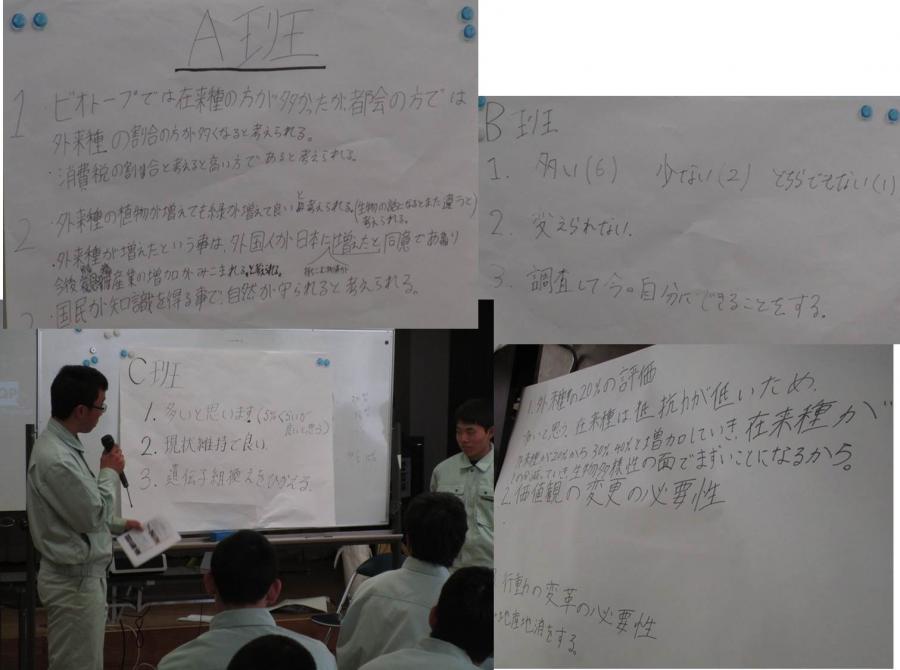 A班
1 ・ビオトープでは在来種の方が多かったが、都会の方では
外来種の割合の方が多くなると考えられる。
・消費税の割合と考えると高い方であると考えられる。
2 ・外来種の植物が増えても緑が増えて良いと考えられる。(生物の話になるとまた違うと
考えられる。
・外来種が増えたという事は、外国人が日本に増えたと同意であり
今後産業の増加がみこまれると考えられる。
・国民が知識を得る事で、自然が守られると考えられる。
B班
1. 多い(6) 少ない(2) どちらでもない(1)
2. 変えられない。
3. 調査して今。自分にできることをする。
C班
1. 多いと思います(5%くらいが
良いと思う)
2. 現状維持で良い
3. 遺伝子組換えをひかえる。
1. 外来種の20%の評価
多いと思う。在来種は抵抗力が低いため、
外来種が20%から30%、40%と増加していき、在来種が
減っていき生物多様性の面でまずいことになるから。
2. 価値観の変更の必要性
行動の変革の必要性
地産地消をする。